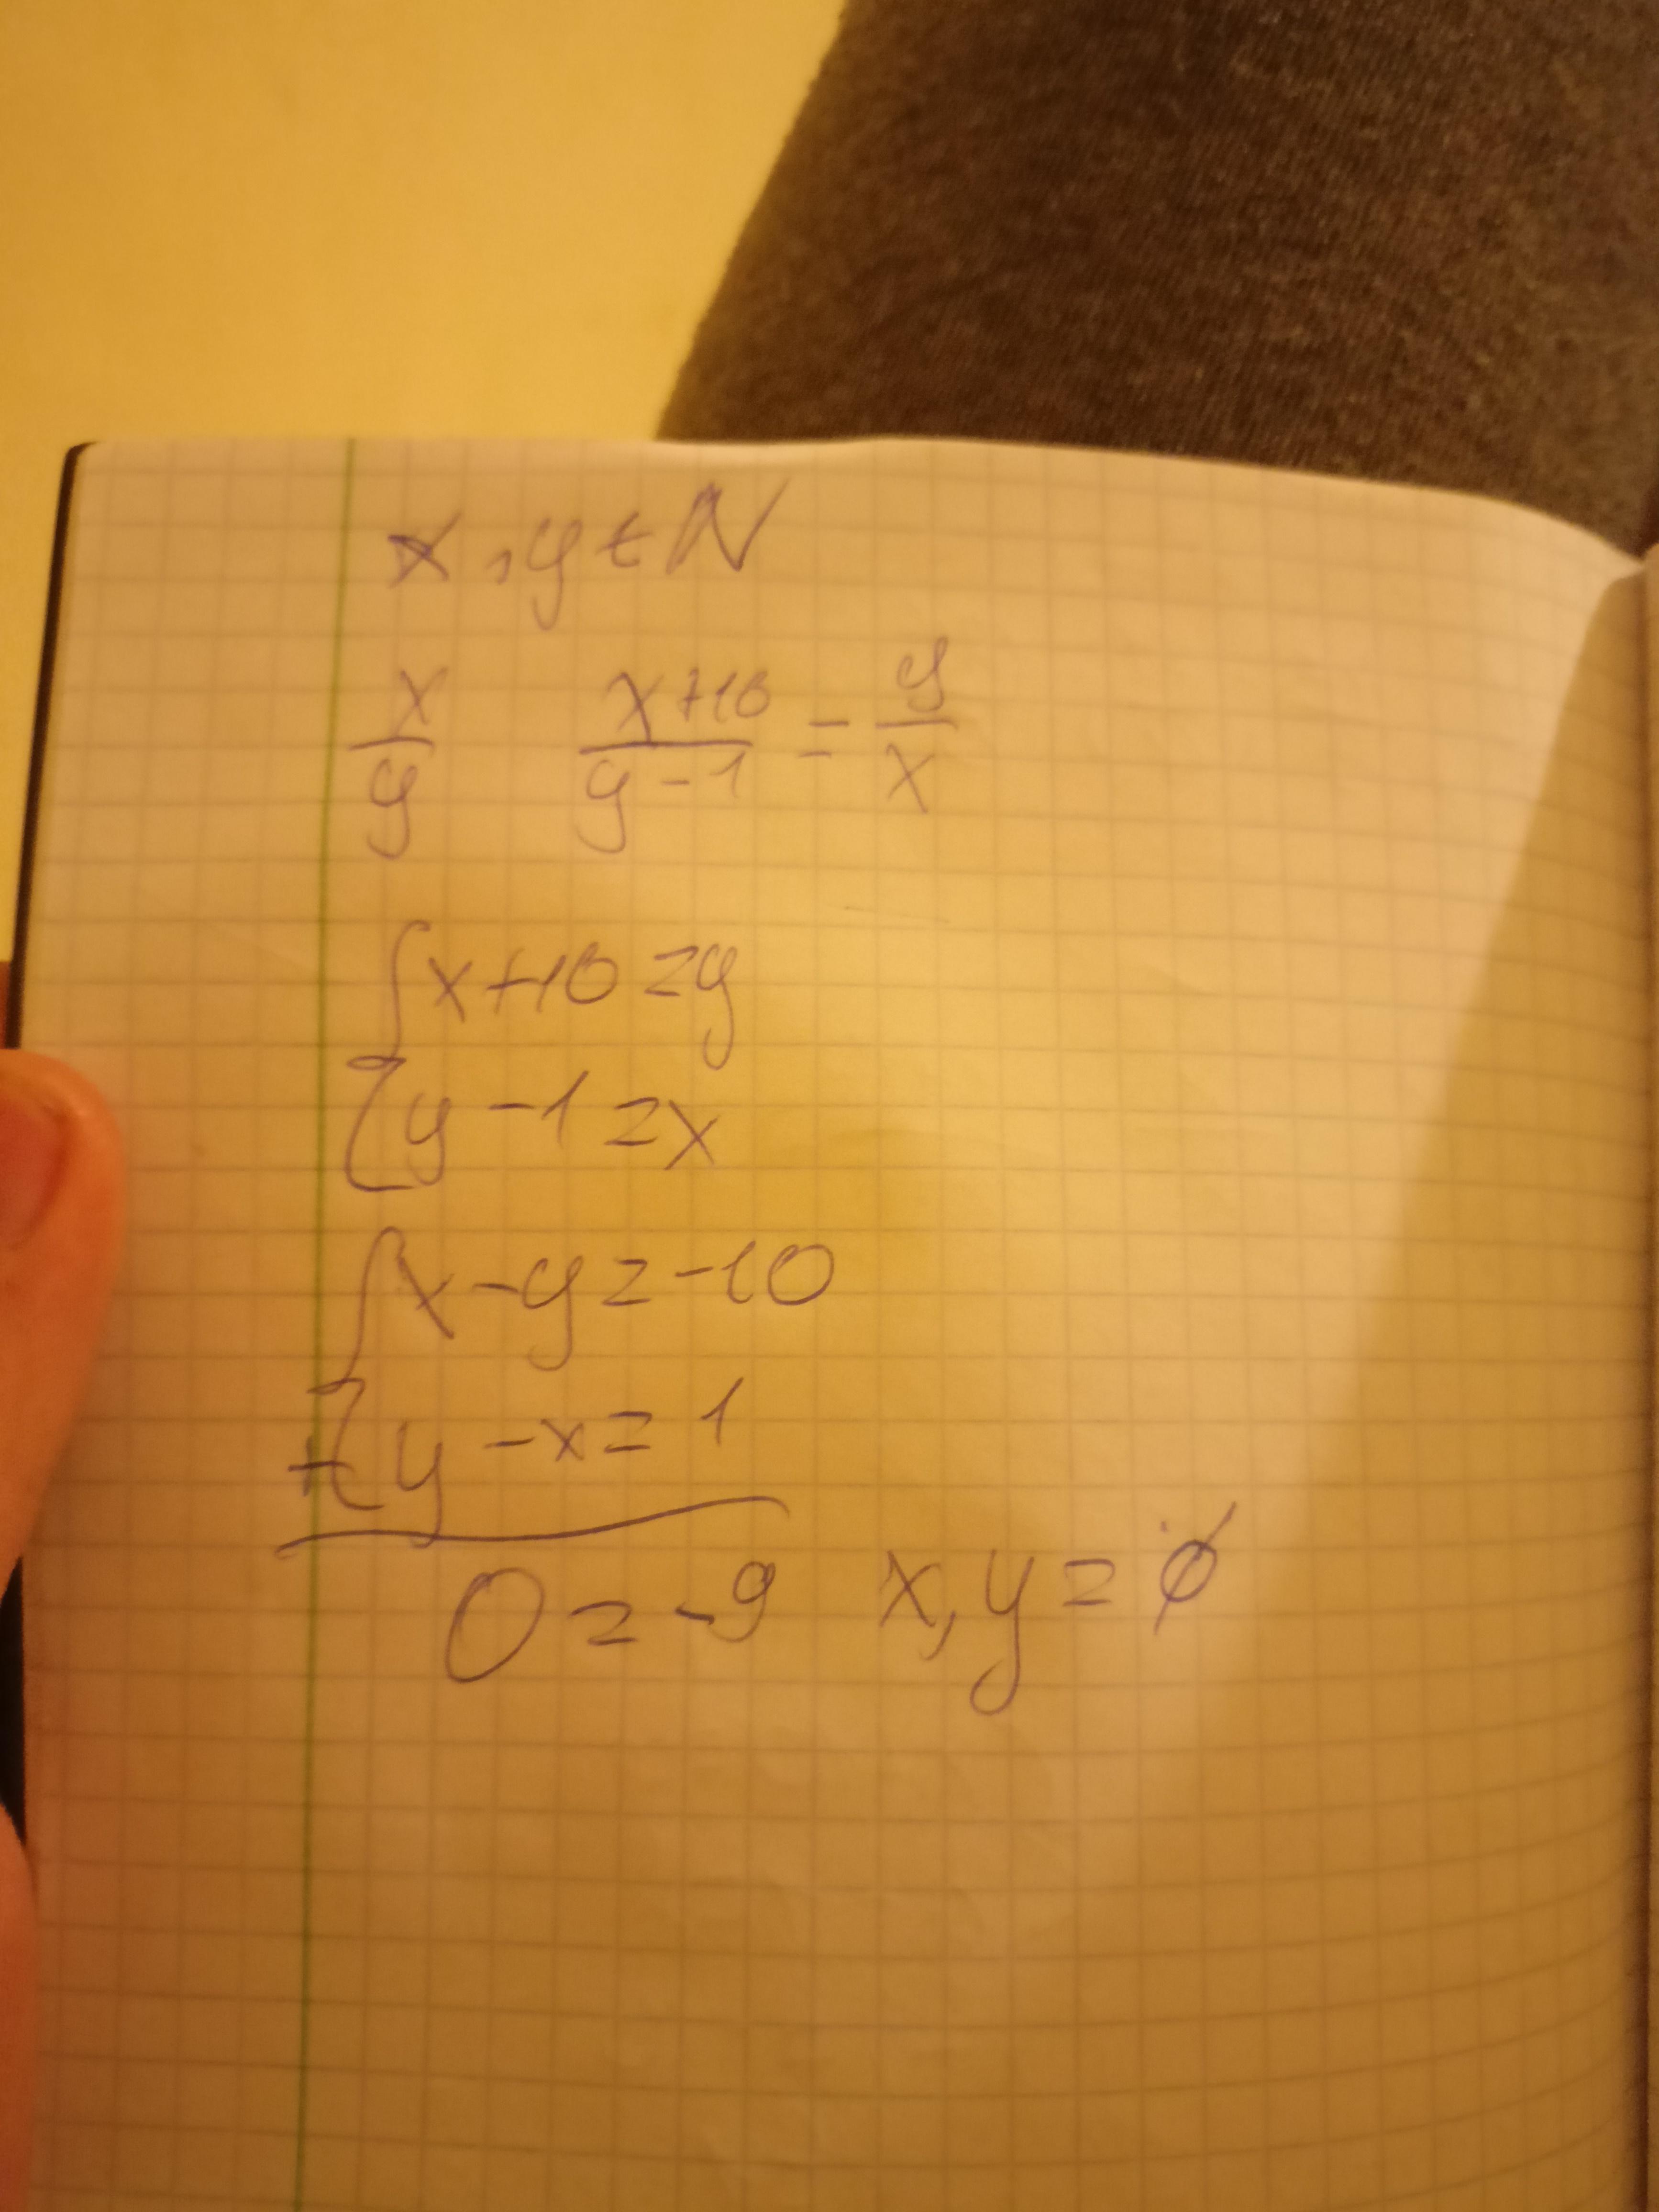 x, y ∈ N
x/y (x+10)/(y-1) = y/x
{x+10=y
{y-1=x
{x-y=-10
+{y-x=1
0=-9 x,y=∅